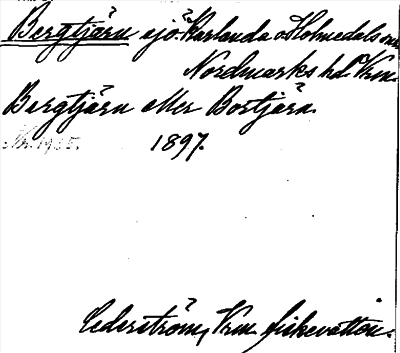 Bergtjärn sjö i Karlanda o Holmedals snr
Nordmarks hd. Vrm.
Bergtjärn eller Bortjärn.
1897.
Cederström, Vrm. fiskevatten.